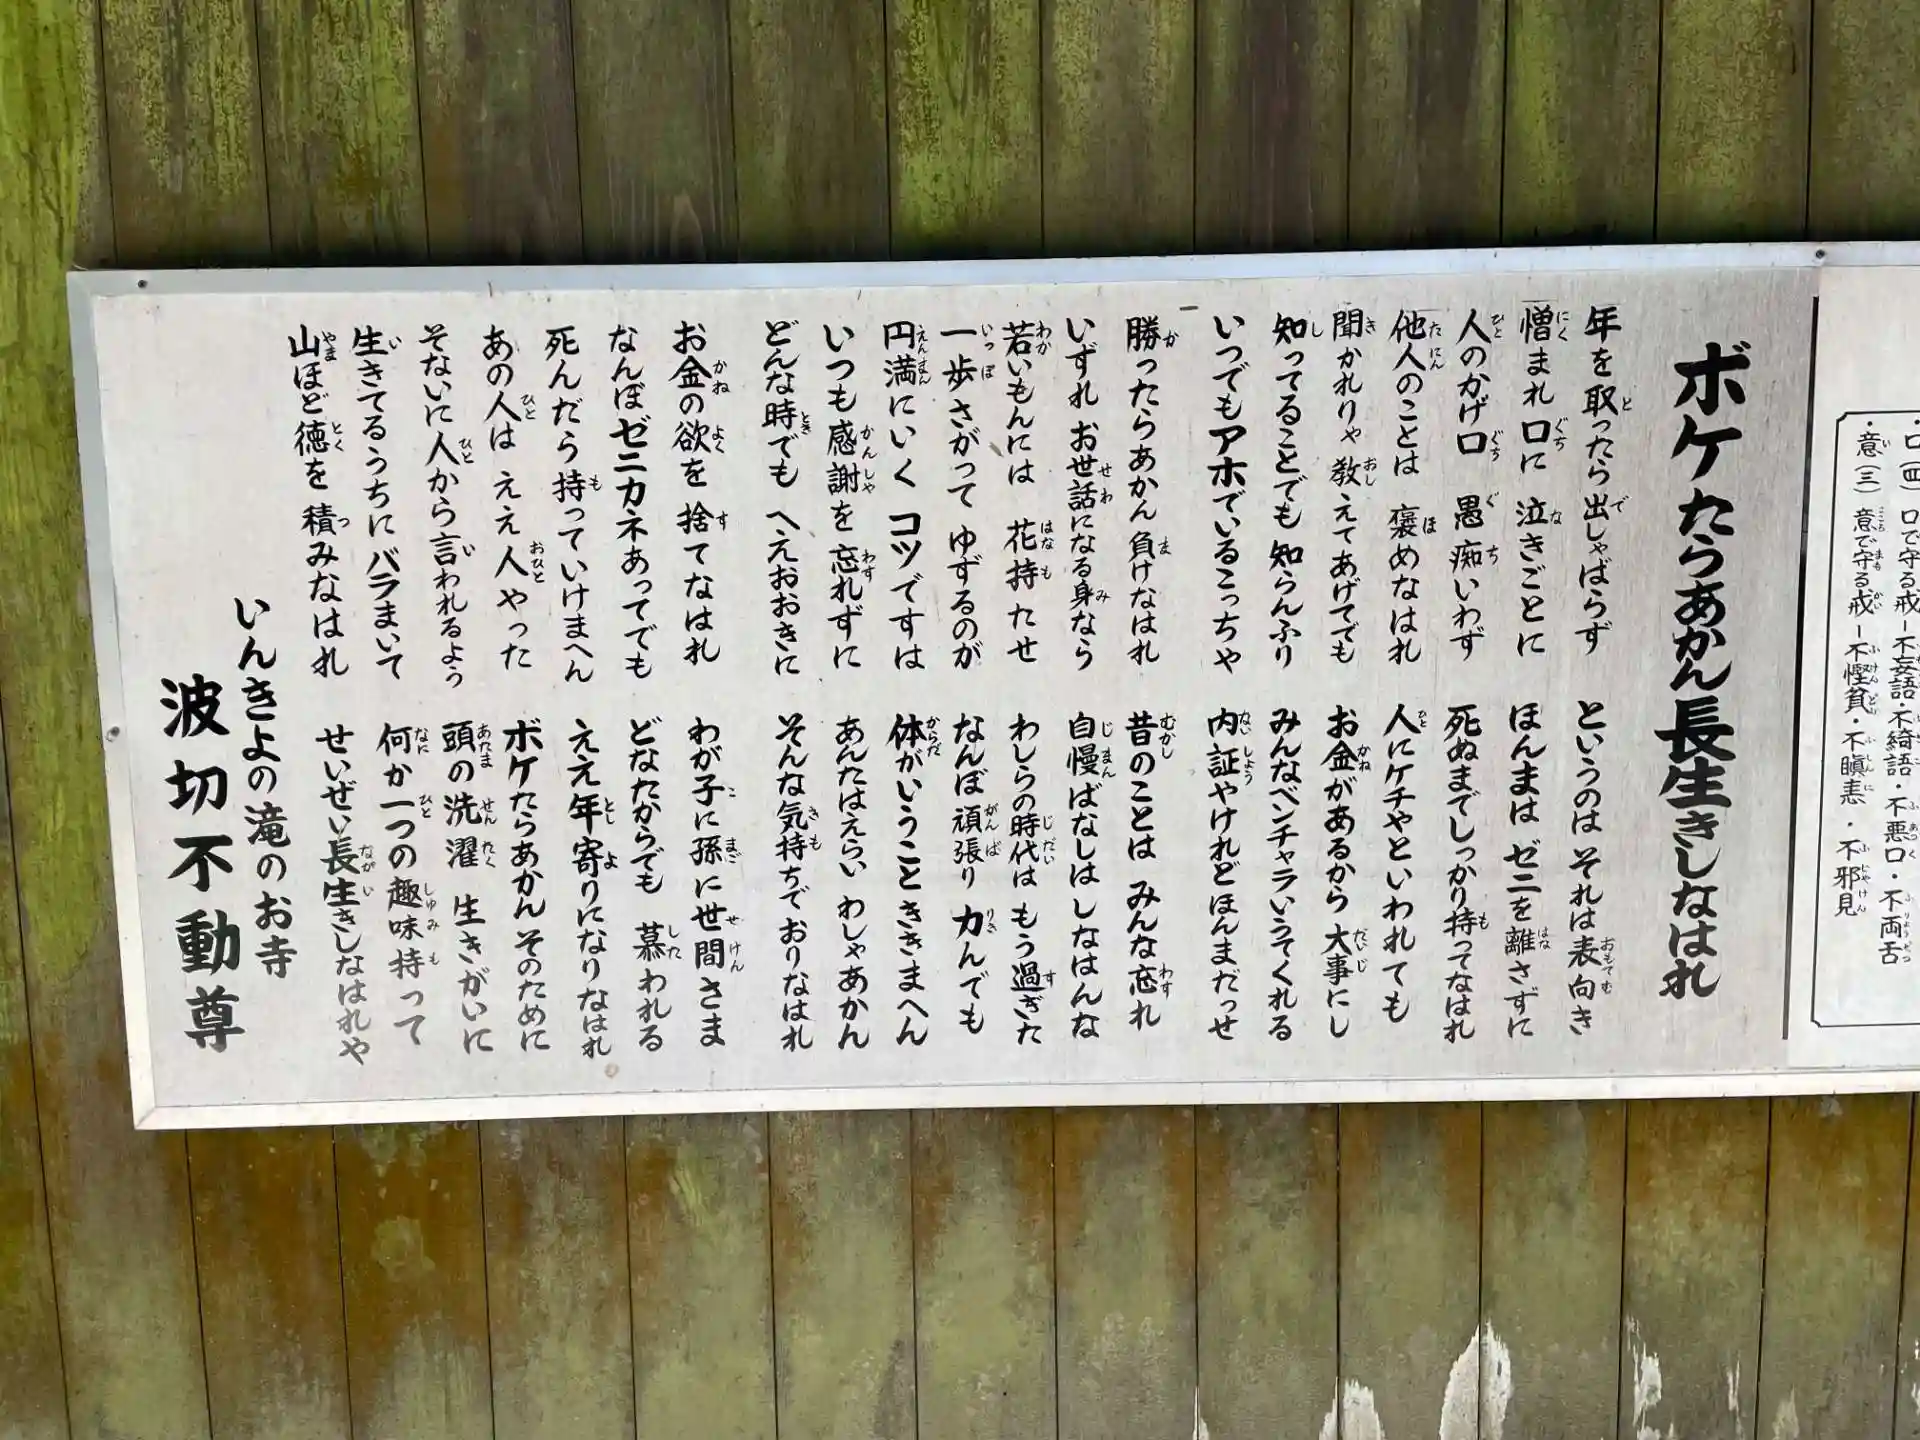 ・口(四) 口で守る戒ー不妄語・不綺語・不悪口・不両舌
・意(三) 意で守る戒ー不慳貪・不瞋恚・不邪見
ボケたらあかん長生きしなはれ
年を取ったら出しゃばらず
憎まれ口に 泣きごとに
人のかげ口 愚痴いわず
他人のことは 褒めなはれ
聞かれりゃ教えてあげてでも
知ってることでも 知らんふり
いつでもアホでいるこっちゃ
勝ったらあかん負けなはれ
いずれお世話になる身なら
若いもんには 花持たせ
一歩さがって ゆずるのが
円満にいく コツですは
いつも感謝を忘れずに
どんな時でも へえおおきに
お金の欲を 捨てなはれ
なんぼゼニカネあってでも
死んだら持っていけまへん
あの人は ええ人やった
そないに人から言われるよう
生きてるうちにバラまいて
山ほど徳を 積みなはれ
というのは それは表向き
ほんまは ゼニを離さずに
死ぬまでしっかり持ってなはれ
人にケチやといわれても
お金があるから 大事にし
みんなベンチャラいうてくれる
内証やけれどほんまだっせ
昔のことは みんな忘れ
自慢ばなしは しなはんな
わしらの時代は もう過ぎた
なんぼ頑張り 力んでも
体がいうこときまへん
あんたはえらい わしゃあかん
そんな気持ちで おりなはれ
わが子に孫に 世間さま
どなたからでも 慕われる
ええ年寄りになりなはれ
ボケたらあかん そのために
頭の洗濯 生きがいに
何か一つの趣味持って
せいぜい長生きしなはれや
いんきよの滝のお寺
波切不動尊